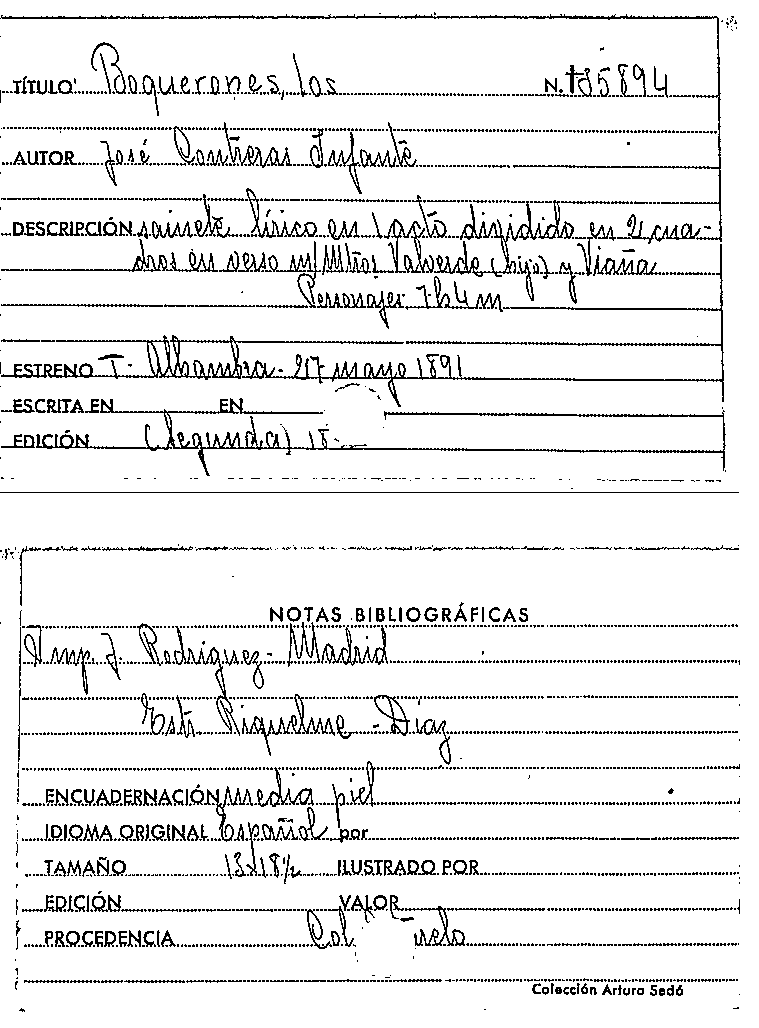 TÍTULO Boquerones, los N. 5894
AUTOR José Contreras Infante
DESCRIPCIÓN sainete lírico en 1 acto dividido en 2 cua-
dros en verso m/ Mtros Valverde (hijo) y Viaña
Personajes 7h 4m
ESTRENO T. Alhambra - 27 mayo 1891
ESCRITA EN EN
EDICIÓN (Segunda) 18
NOTAS BIBLIOGRÁFICAS
Imp. J. Rodriguez - Madrid
Estr. Riquelme - Díaz
ENCUADERNACIÓN media piel
IDIOMA ORIGINAL Español por
TAMAÑO 13x18½ ILUSTRADO POR
EDICIÓN VALOR
PROCEDENCIA Col.
Colección Arturo Sedó